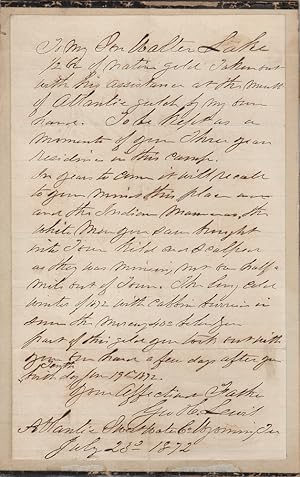 To my Son Walter Lake
1/2 oz of native gold Taken out
with his assistance at the mouth
of Atlantic gulch by my own
hand. To be kept as a
momento of your Three years
residence in this camp.
In years to come it will recall
to your mind this place
and the Indian Massacres, the
White Man you saw brought
into Town killed and scalped
as they was mining, not one half a
mile out of Town. The long cold
winter of 1872 with cabbin buried in
snow the
part of this gold you took out with
your own hand a few days after your
tenth
birth day Jan 19th 1872.
Your Affectionate Father
Geo
Atlantic Sweetwater Co Wyoming Ter
July 23d 1872